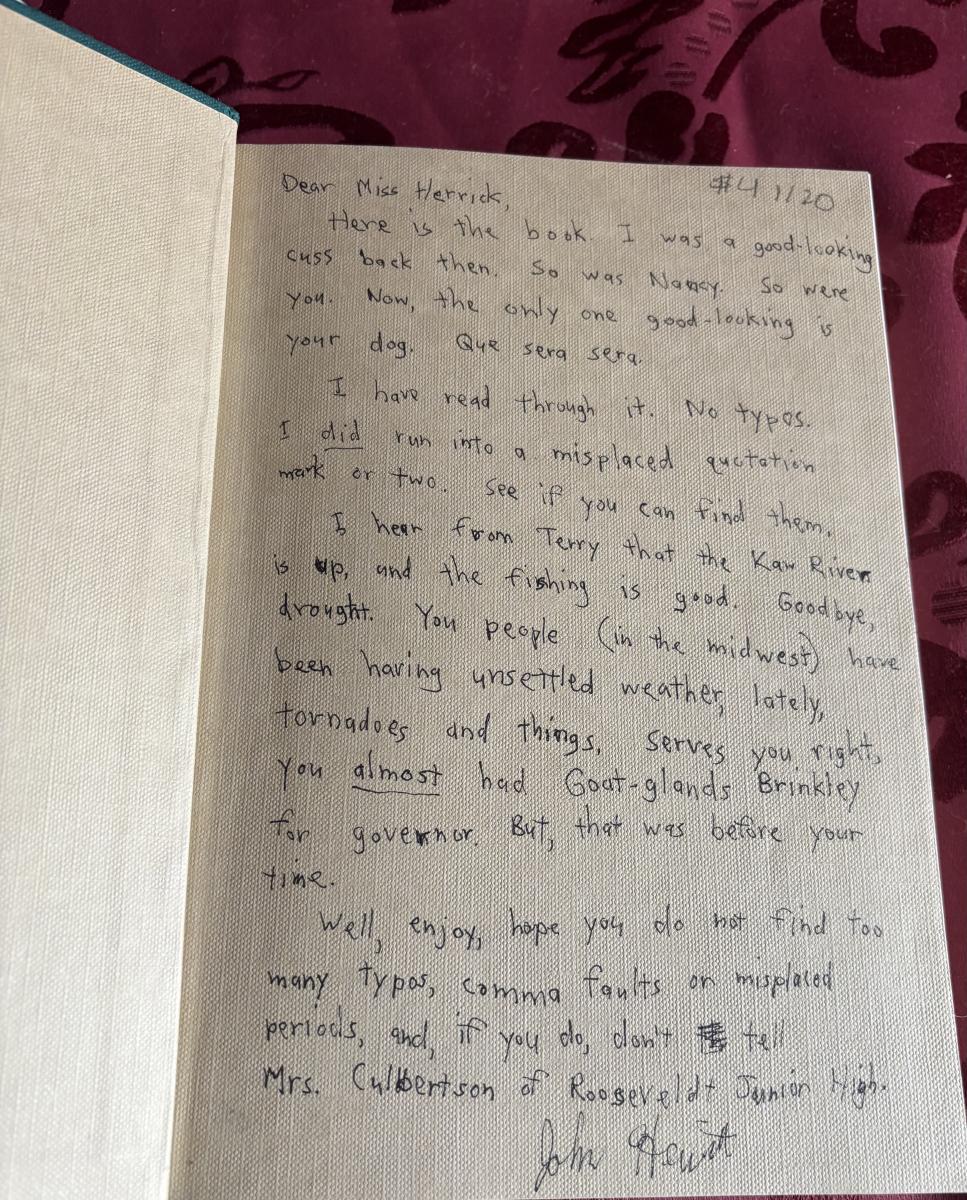 #4 1/20
Dear Miss Herrick,
Here is the book. I was a good-looking
cuss back then. So was Nancy. So were
you. Now, the only one good-looking is
your dog. Que sera sera.
I have read through it. No typos.
I did run into a misplaced quotation
mark or two. See if you can find them.
I hear from Terry that the Kaw River
is up, and the fishing is good. Goodbye,
drought. You people (in the midwest) have
been having unsettled weather, lately,
tornadoes and things. Serves you right,
you almost had Goat-glands Brinkley
for governor. But, that was before your
time.
Well, enjoy, hope you do not find too
many typos, comma faults or misplaced
periods, and, if you do, don't tell
Mrs. Culbertson of Rooseveldt Junior High.
John Hewitt